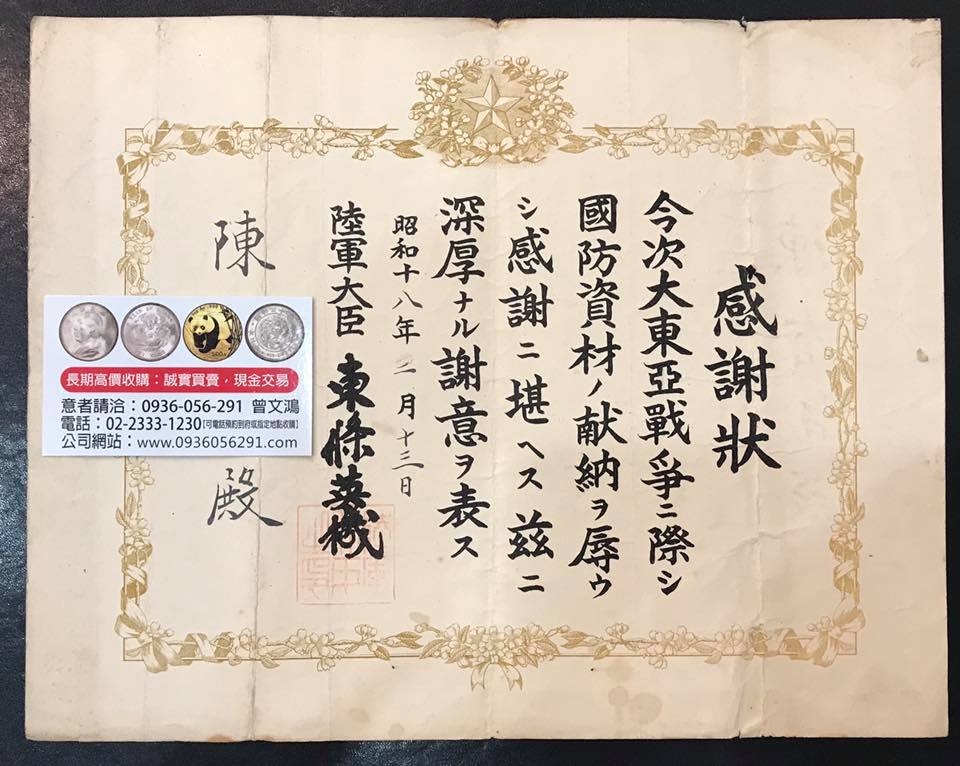 感謝狀
今次大東亞戰爭ニ際シ
國防資材ノ献納ヲ辱ウ
シ感謝ニ堪ヘス茲ニ
深厚ナル謝意ヲ表ス
昭和十八年二月十三日
陸軍大臣 東條英機
陳
殿
長期高價收購：誠實買賣，現金交易
意者請洽：0936-056-291 曾文鴻
電話：02-2333-1230【可電話預約到府或指定地點收購】
公司網站：www.0936056291.com